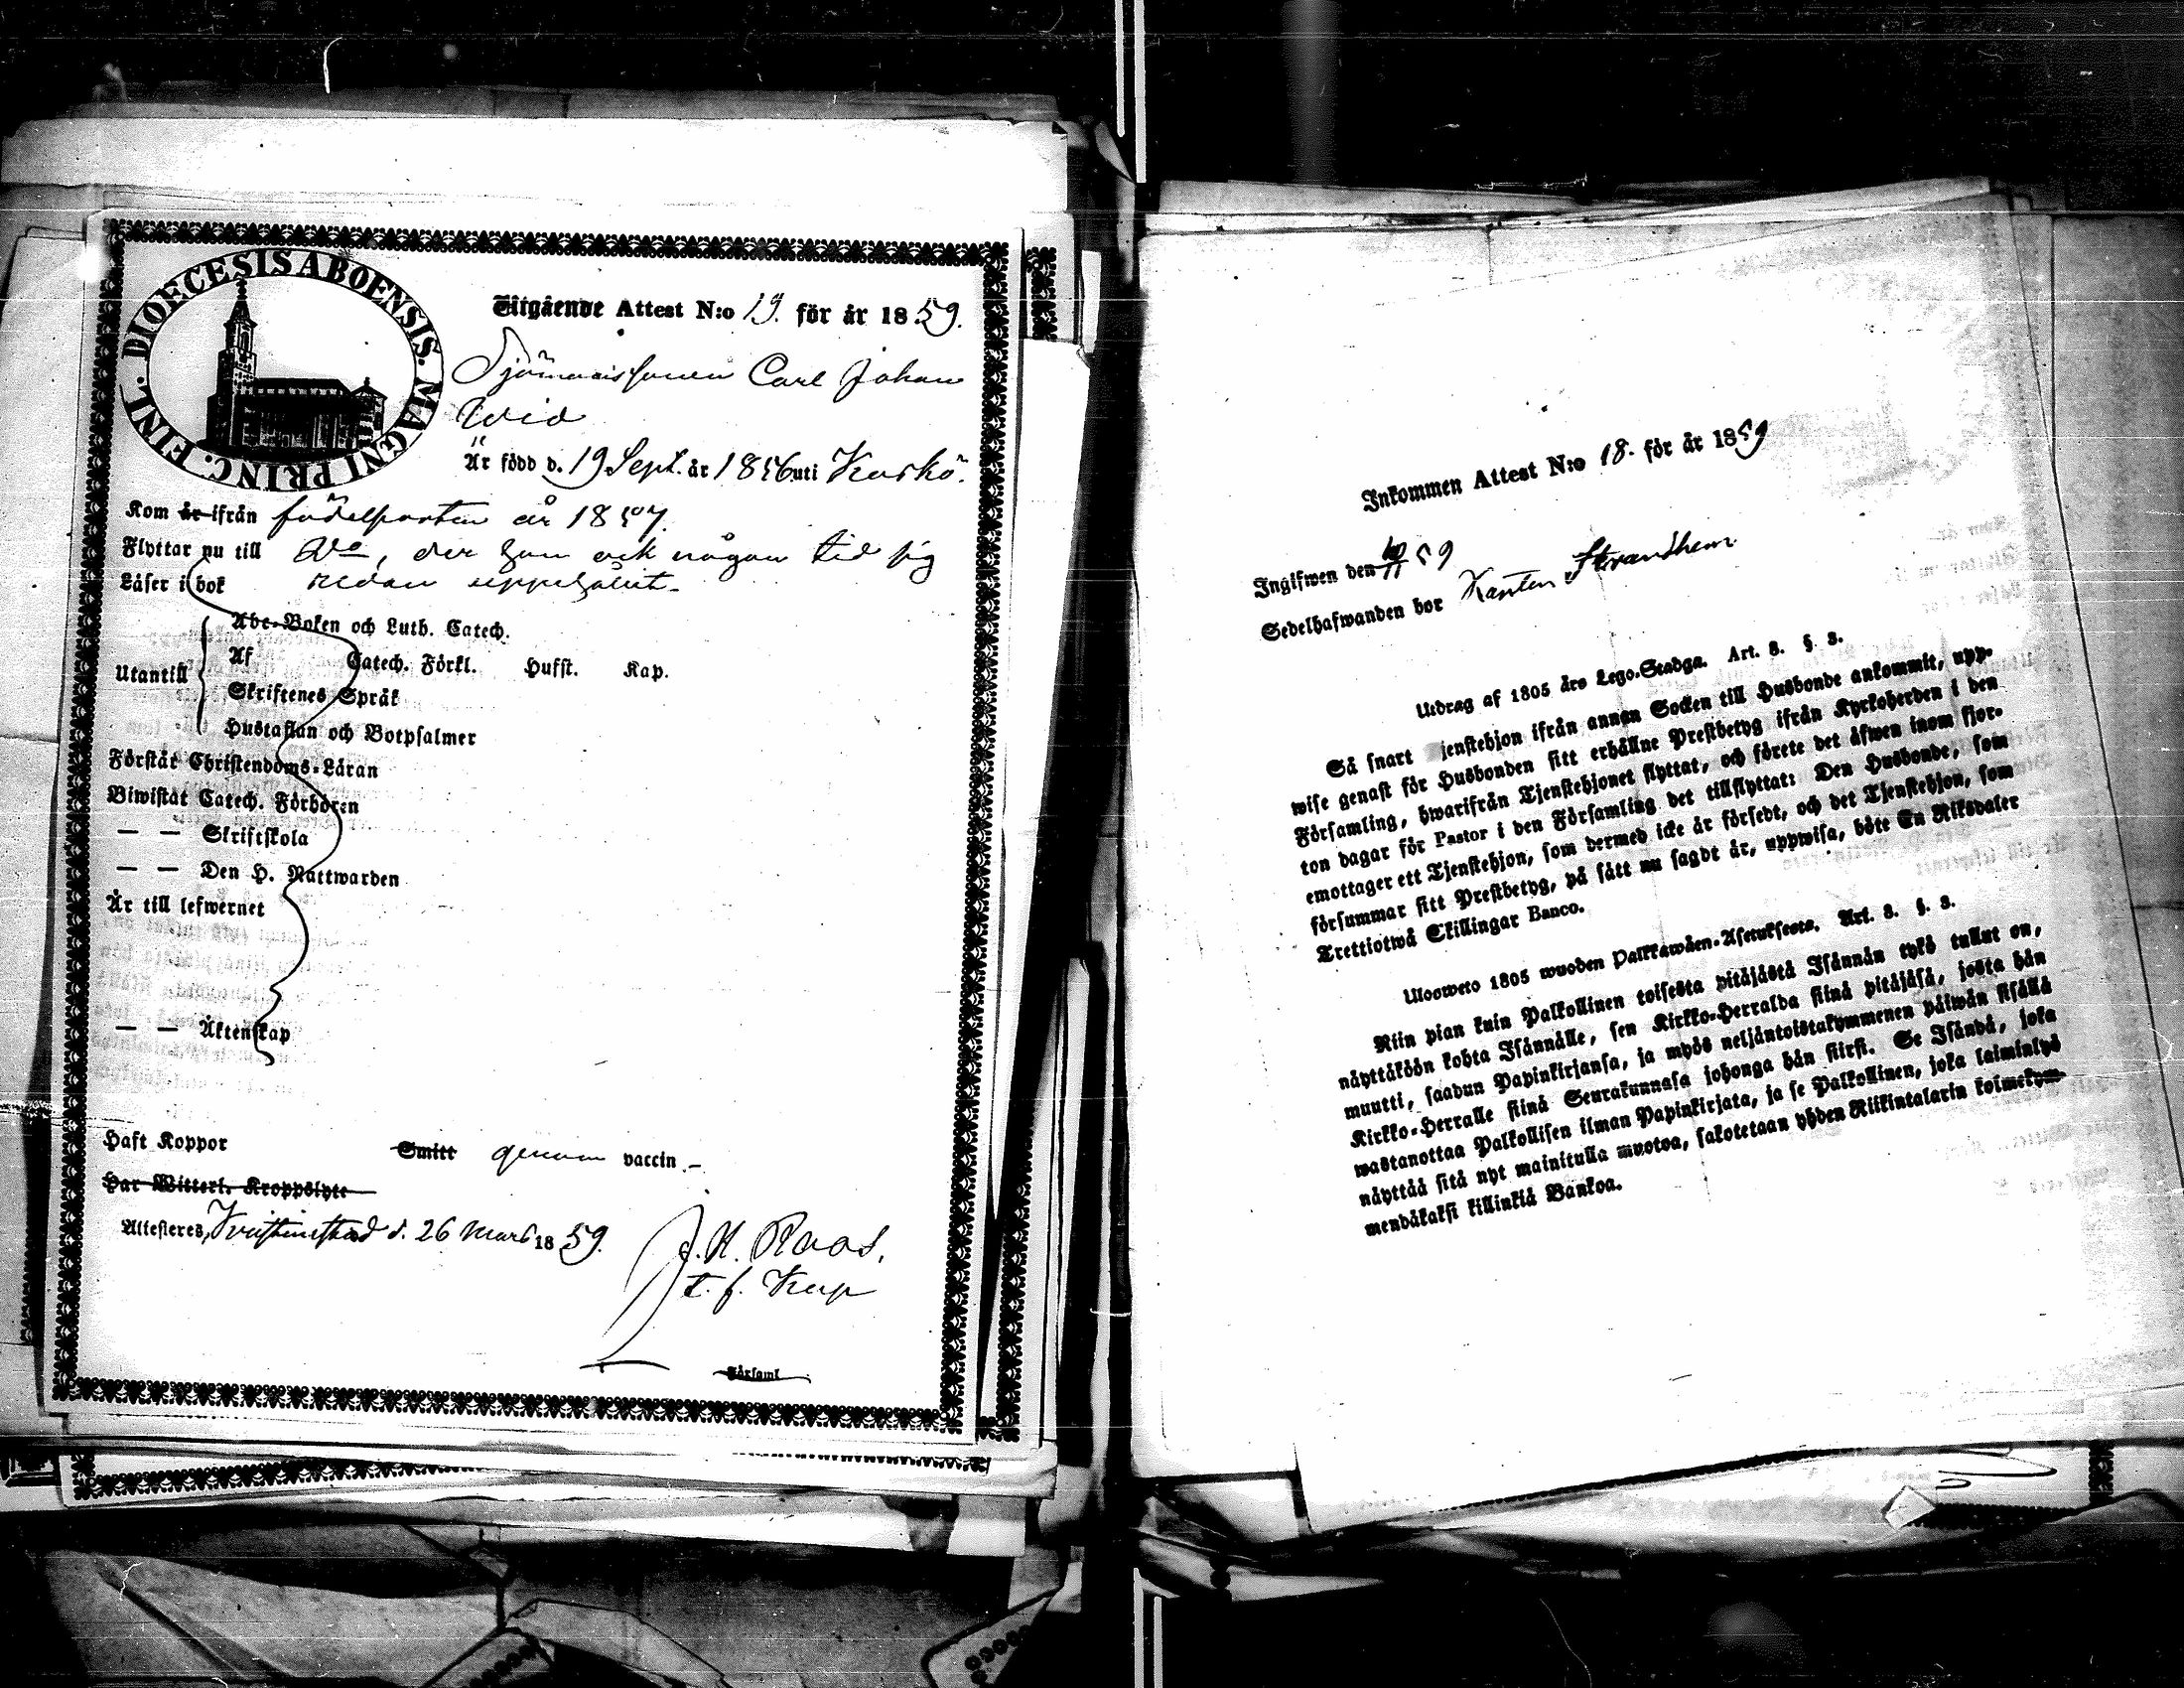 DIOECESIS ABOENSIS. MAGNI PRINC. FINL.
Utgående Attest N:o 19. för år 1859.
Sjömanssonen Carl Johan
Wid
Är född d. 19 Sept. år 1856 uti Kaskö.
Kom år ifrån födelseorten år 1857.
Flyttar nu till D:o, der han ock någon tid sig
Läser i bok redan uppehållit.
Abc-Boken och Luth. Catech.
Utantill Af Catech. Förkl. Hufst. Kap.
Skriftenes Språk
Hustaflan och Botpsalmer
Förstår Christendoms-Läran
Biwistat Catech. Förhören
— — Skriftskola
— — Den H. Nattwarden
Är till lefwernet
— — Äktenskap
Haft Koppor Smitt genom vaccin.
Har Witterl. Kroppslyte
Attesteres, Kristinestad d. 26 Mars 1859.
J. H. Roos.
t. f. Kap
Församl.
Inkommen Attest N:o 18. för år 1859
Ingifwen den 10/11 59
Sedelhafwanden bor Karten Strandhem
Utdrag af 1805 års Lego-Stadga. Art. 8. §. 3.
Så snart jenstehjon ifrån annan Socken till Husbonde ankommit, upp-
wise genast för Husbonden sitt erhållne Prestbetyg ifrån Kyrkoherden i den
Församling, hwarifrån Tjenstehjonet flyttat, och förete det äfwen inom fjor-
ton dagar för Pastor i den Församling det tillflyttat: Den Husbonde, som
emottager ett Tjenstehjon, som dermed icke är försedt, och det Tjenstehjon, som
försummar sitt Prestbetyg, på sätt nu sagdt är, uppwisa, böte En Riksdaler
Trettiotwå Skillingar Banco.
Ulosweto 1805 wuoden Palkkawäen-Asetuksesta. Art. 8. §. 3.
Niin pian kuin Palkollinen toisesta pitäjästä Isännän tykö tullut on,
näyttäköön kohta Isännälle, sen Kirkko-Herralda siinä pitäjäsä, josta hän
muutti, saadun Papinkirjansa, ja myös neljäntoistakymmenen päiwän sisällä
Kirkko-Herralle siinä Seurakunnasa johonga hän siirsi. Se Isändä, joka
wastanottaa Palkollisen ilman Papinkirjata, ja se Palkollinen, joka laiminlyö
näyttää sitä nyt mainitulla muotoa, sakotetaan yhden Riikintalarin kolmekym-
mendäkaksi killinkiä Bankoa.